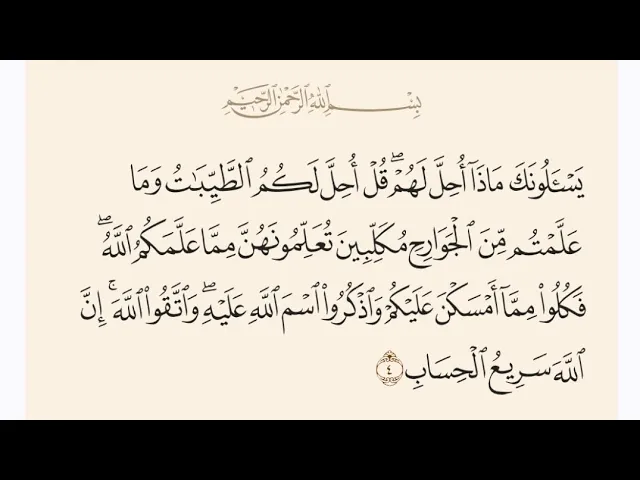 بِسْمِ ٱللَّهِ ٱلرَّحْمَٰنِ ٱلرَّحِيمِ
يَسْـَٔلُونَكَ مَاذَآ أُحِلَّ لَهُمْ ۖ قُلْ أُحِلَّ لَكُمُ ٱلطَّيِّبَـٰتُ وَمَا
عَلَّمْتُم مِّنَ ٱلْجَوَارِحِ مُكَلِّبِينَ تُعَلِّمُونَهُنَّ مِمَّا عَلَّمَكُمُ ٱللَّهُ ۖ
فَكُلُوا۟ مِمَّآ أَمْسَكْنَ عَلَيْكُمْ وَٱذْكُرُوا۟ ٱسْمَ ٱللَّهِ عَلَيْهِ ۖ وَٱتَّقُوا۟ ٱللَّهَ ۚ إِنَّ
ٱللَّهَ سَرِيعُ ٱلْحِسَابِ ٤